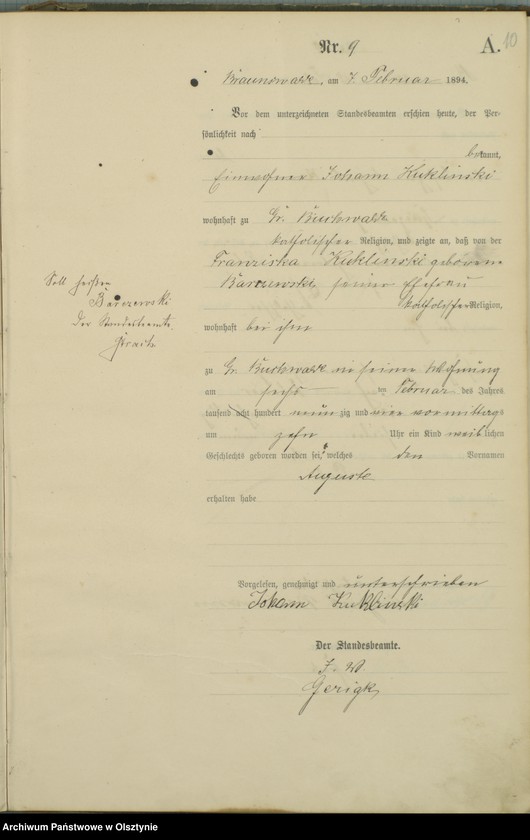 Nr. 9
A.
10
Braunswalde, am 7. Februar 1894.
Vor dem unterzeichneten Standesbeamten erschien heute, der Per-
sönlichkeit nach
bekannt,
Einwohner Johann Kuklinski
wohnhaft zu Gr. Buchwalde
katholischer Religion, und zeigte an, daß von der
Franziska Kuklinski geborene
Barzewski seiner Ehefrau
katholischer Religion,
wohnhaft bei ihm
zu Gr. Buchwalde in seiner Wohnung
am sechs ten Februar des Jahres
tausend acht hundert neun zig und vier vormittags
um zehn Uhr ein Kind weiblichen
Geschlechts geboren worden sei, welches den Vornamen
Auguste
erhalten habe
Vorgelesen, genehmigt und unterschrieben
Johann Kuklinski
Der Standesbeamte.
J. V.
Gerigk
Soll heißen
Barczewski
Der Standesbeamte
Archiwum Państwowe w Olsztynie